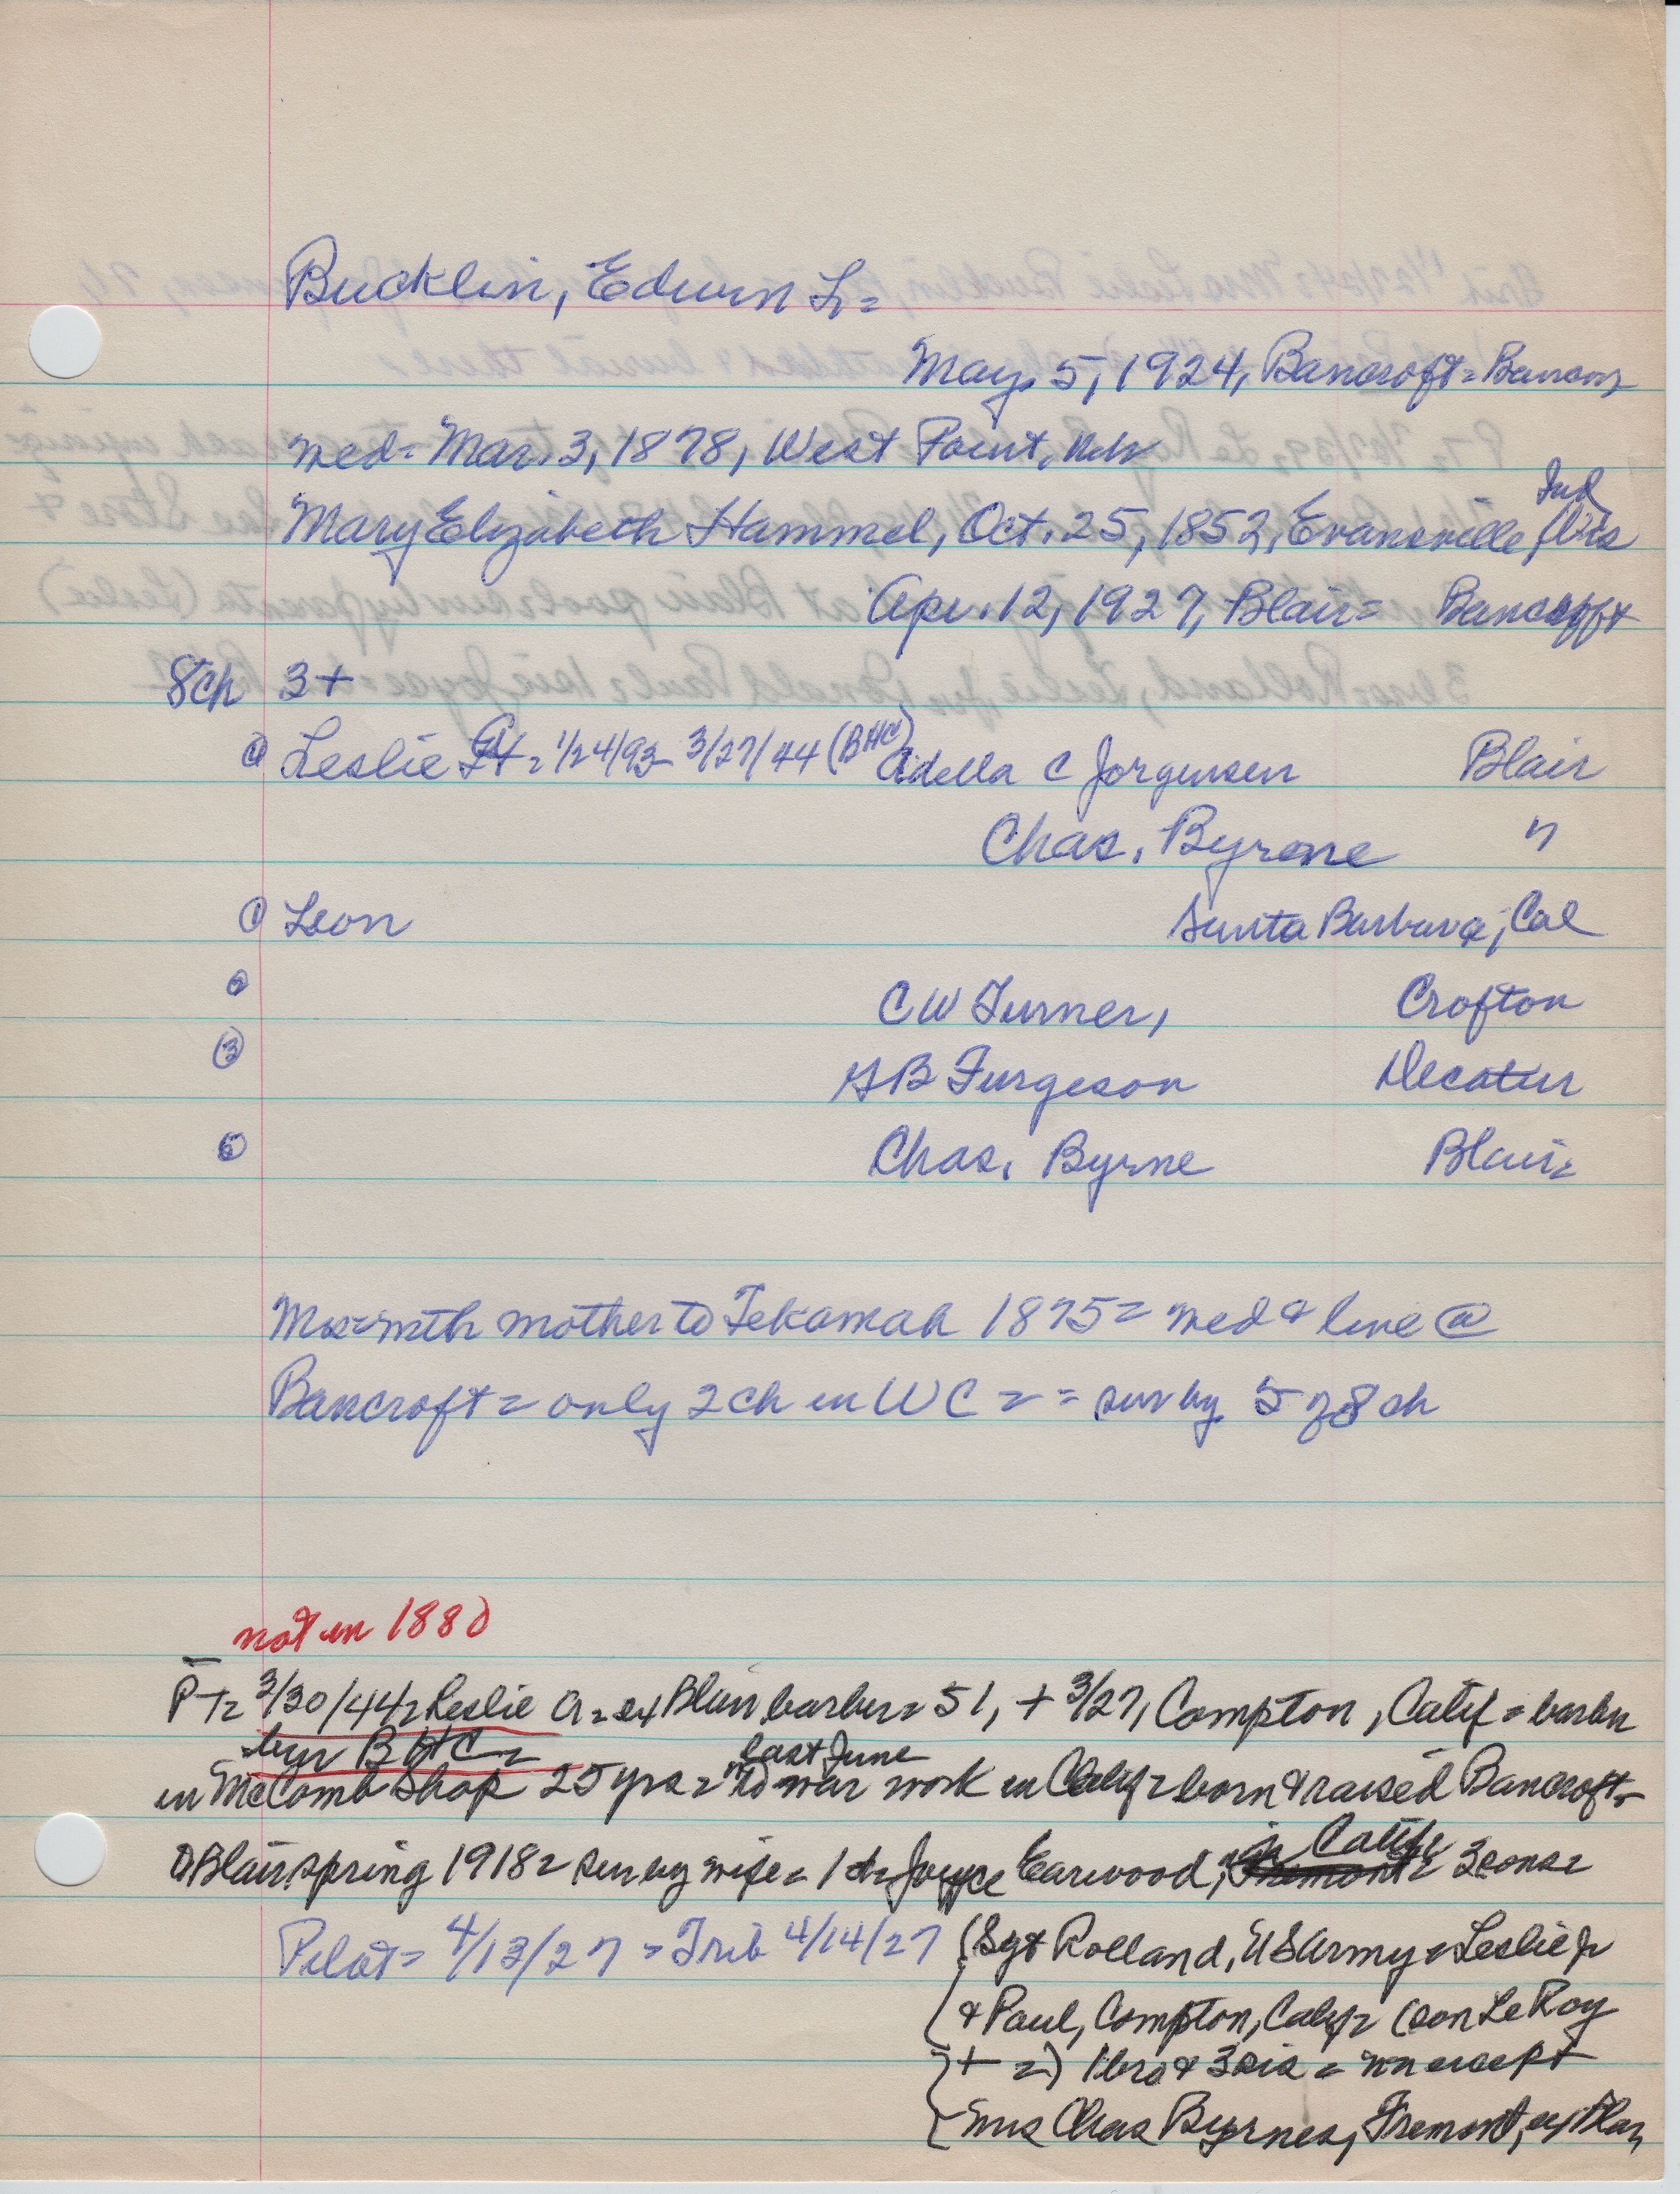 Bucklin, Edwin L=
May. 5, 1924, Bancroft = Bancroft
med = Mar. 3, 1878, West Point, Neb
Ind
Mary Elizabeth Hammel, Oct. 25, 1852, Evansville Wis
Apr. 12, 1927, Blair = Bancroft
8ch 3+
④ Leslie A = 1/24/93 3/27/44 (BHC) Adella C Jorgensen Blair
Chas. Byrone "
① Leon Santa Barbara, Cal
② C W Turner, Crofton
③ GB Furgeson Decatur
⑤ Chas. Byrne Blair=
Mrs = with mother to Tekamah 1875 = med & live @
Bancroft = only 2 ch in WC = = sur by 5 of 8 ch
not in 1880
PT = 3/30/44 = Leslie A = ex Blair barber = 51, + 3/27, Compton, Calif = barber
bur BHC =
last June
in McComb Shop 25 yrs = to war work in Calif = born & raised Bancroft =
Blair spring 1918 = sur by wife = 1 d = Joyce Earwood, Fremont = 3 sons =
in Calif
Pilot = 4/13/27 = Trib 4/14/27 (Sgt Rolland, US Army = Leslie Jr
& Paul, Compton, Calif = (son LeRoy
+ =) 1 bro & 3 sis = nn except
Mrs Chas Byrnes, Fremont, ex Blair